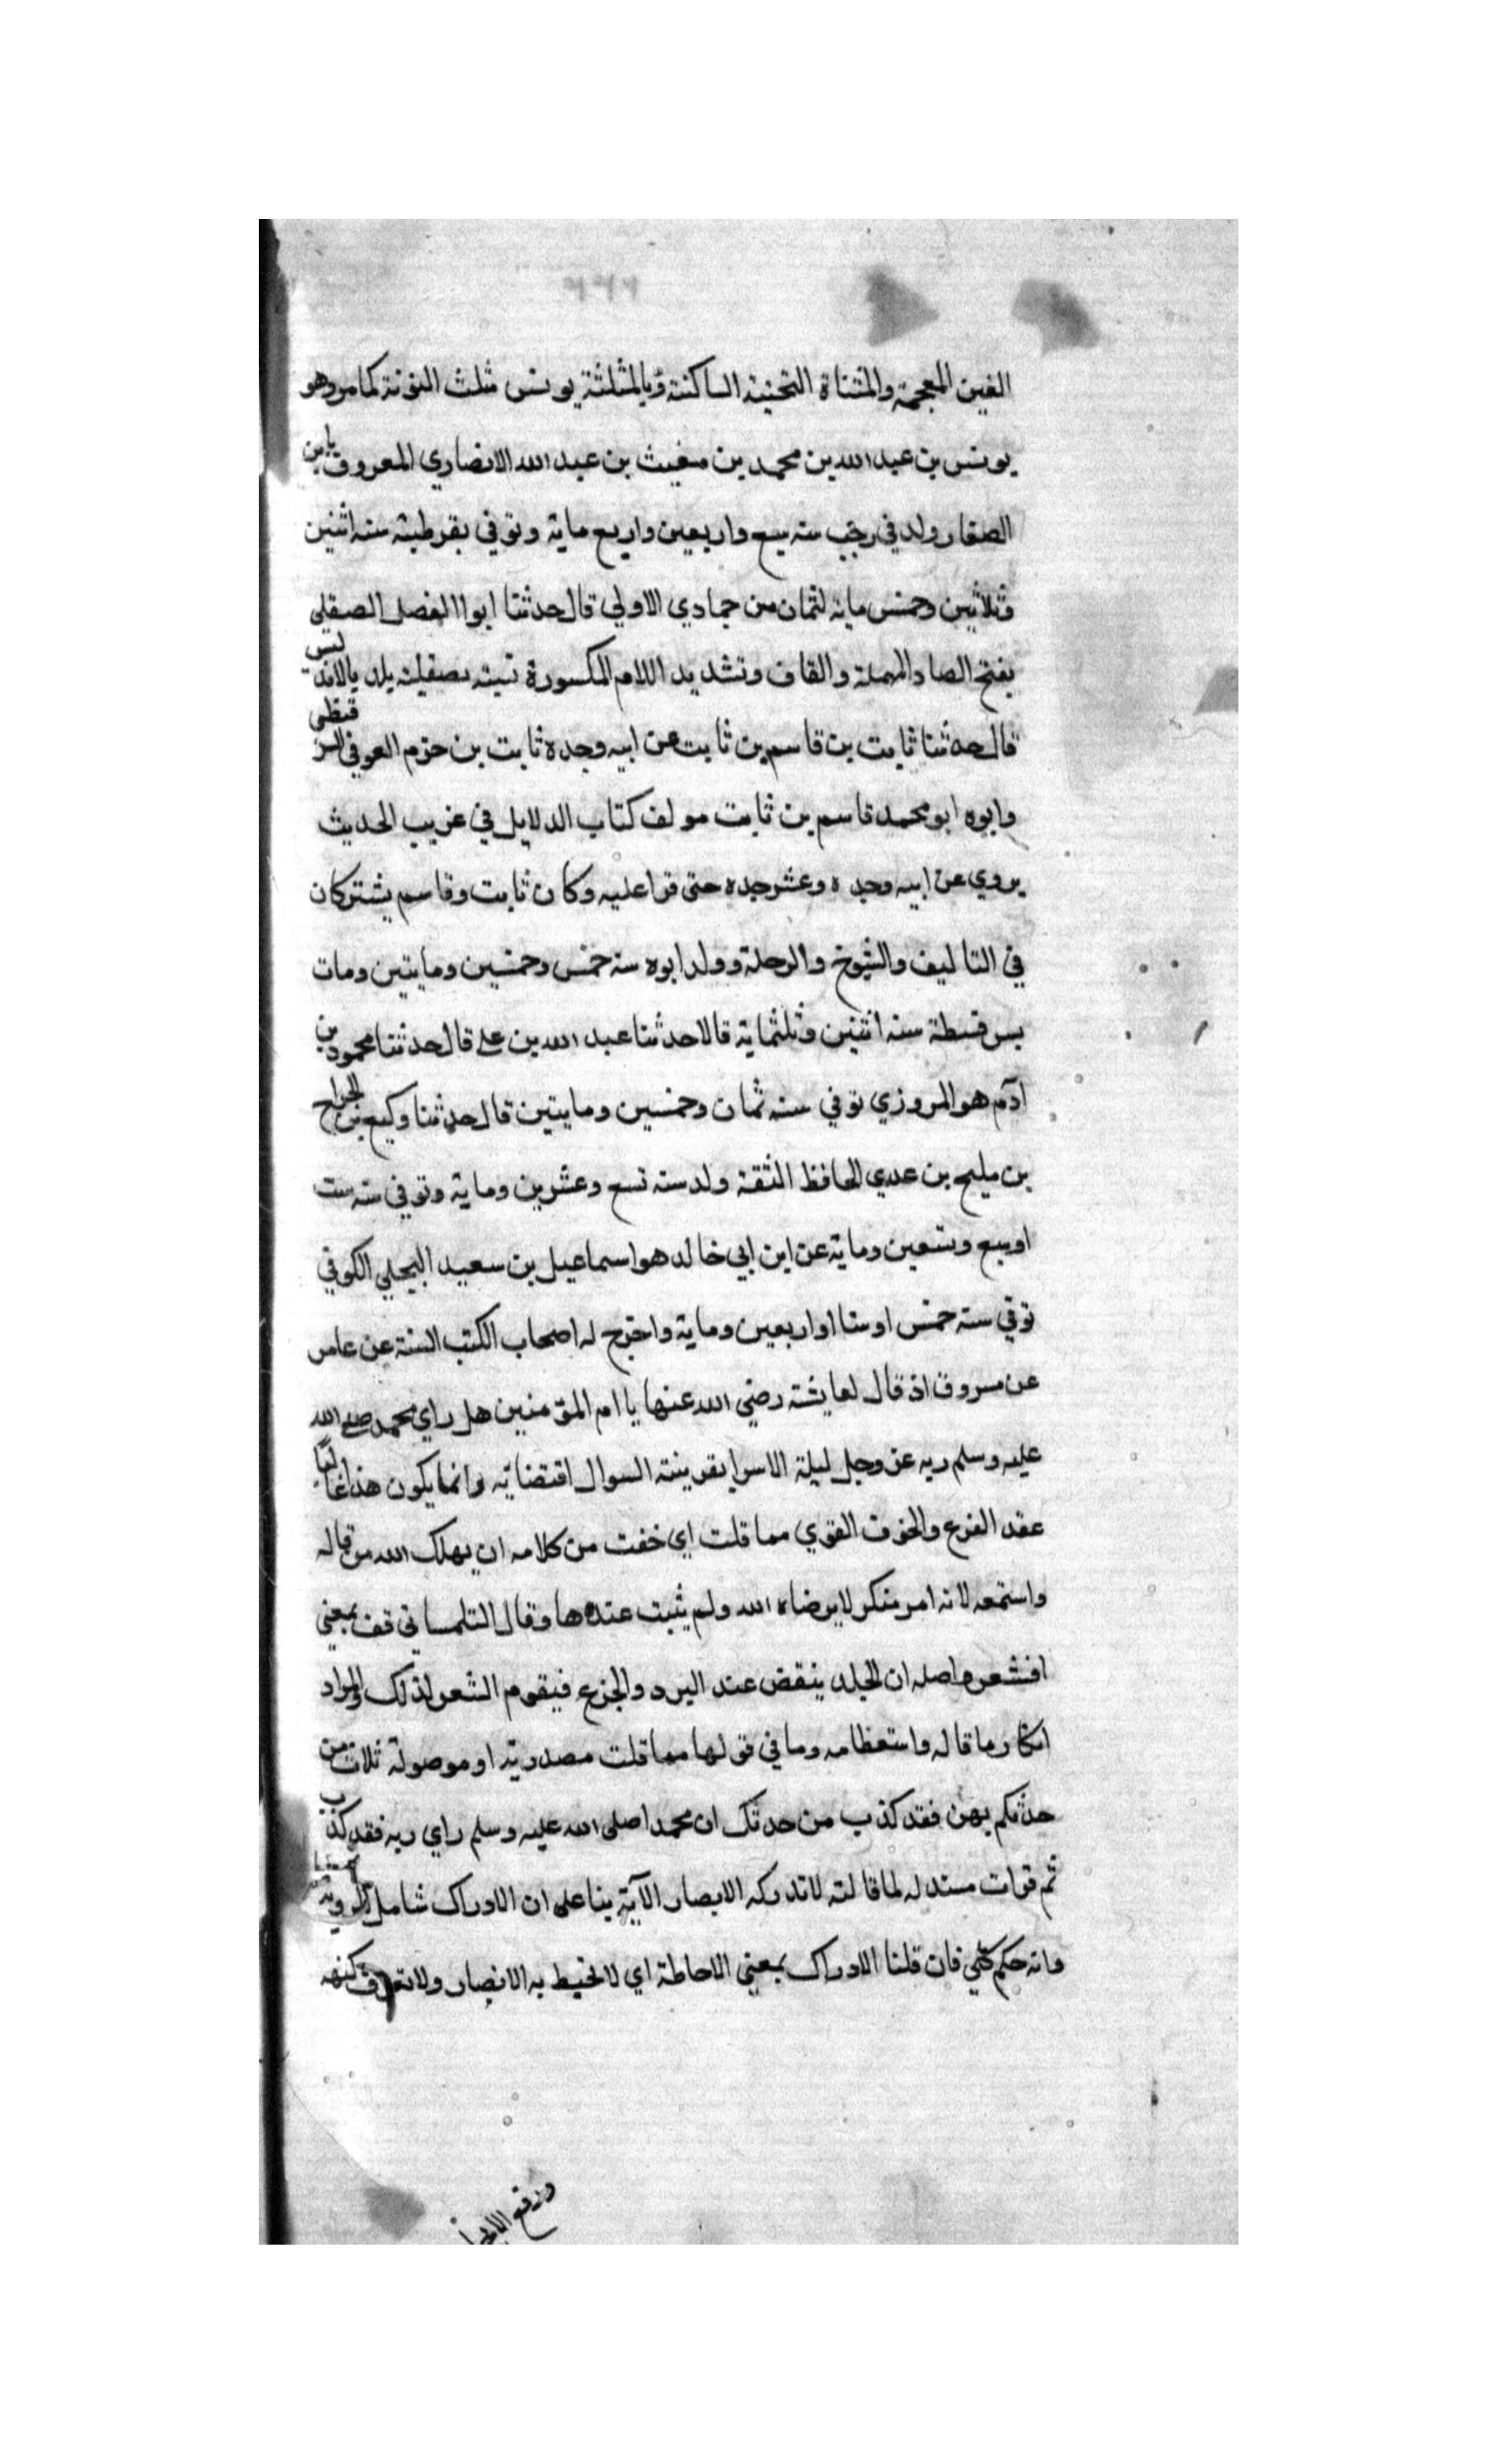 الغين المعجمة والمثناة التحتية الساكنة وبالمثلثة يونس مثلث النونة كما مر وهو
يونس بن عبد الله بن محمد بن مغيث بن عبد الله الانصاري المعروف بابن
الصفار ولد في رجب سنه سبع واربعين واربع ماية وتوفي بقرطبة سنه اثنين
وثلاثين وخمس ماية لثمان من جمادي الاولي قال حدثنا ابوا الفضل الصقلي
بفتح الصاد المهملة والقاف وتشديد اللام المكسورة نسبة بصقلية بلد بالاندليس
قال حدثنا ثابت بن قاسم بن ثابت عن ابيه وجده ثابت بن حزم العوفي السرقسطي
وابوه ابو محمد قاسم بن ثابت مولف كتاب الدلايل في غريب الحديث
يروي عن ابيه وجده وعشر جده حتى قرا عليه وكان ثابت وقاسم يشتركان
في التاليف والشيوخ والرحلة وولد ابوه سنه خمس وخمسين ومايتين ومات
بسرقسطة سنه اثنين وثلثماية قالا حدثنا عبد الله بن علي قال حدثنا محمود بن
ادم هو المروزي توفي سنه ثمان وخمسين ومايتين قال حدثنا وكيع بن الجراح
بن مليح بن عدي الحافظ الثقة ولد سنه تسع وعشرين وماية وتوفي سنه ست
اوسبع وتسعين وماية عن ابن ابي خالد هو اسماعيل بن سعيد البجلي الكوفي
توفي سنة خمس اوستا اواربعين وماية واخرج له اصحاب الكتب الستة عن عامر
عن مسروق اذ قال لعايشة رضي الله عنها يا ام المؤمنين هل راي محمد صلي الله
عليه وسلم ربه عز وجل ليلة الاسرا بقرينة السوال اقتضايه وانما يكون هذا غالبا
عقد الفزع والخوف القوي مما قلت اي خفت من كلامه ان يهلك الله من قاله
واستمعه لانه امر منكر لا يرضاه الله ولم يثبت عندها وقال التلمساني قف بمعني
اقشعر واصله ان الجلد ينقض عند البرد والجزع فيقوم الشعر لذلك والمراد
انكار ما قاله واستعظامه وما في قولها مما قلت مصدرية او موصولة ثلاث من
حدثكم بهن فقد كذب من حدثك ان محمدا صلى الله عليه وسلم راي ربه فقد كذب
ثم قرات مستدله لما قالته لا تدركه الابصار الآية بنا على ان الادراك شامل للروية
وانه حكم كلي فان قلنا الادراك بمعني الاحاطة اي لا تحيط به الابصار ولا تعرف كنهه